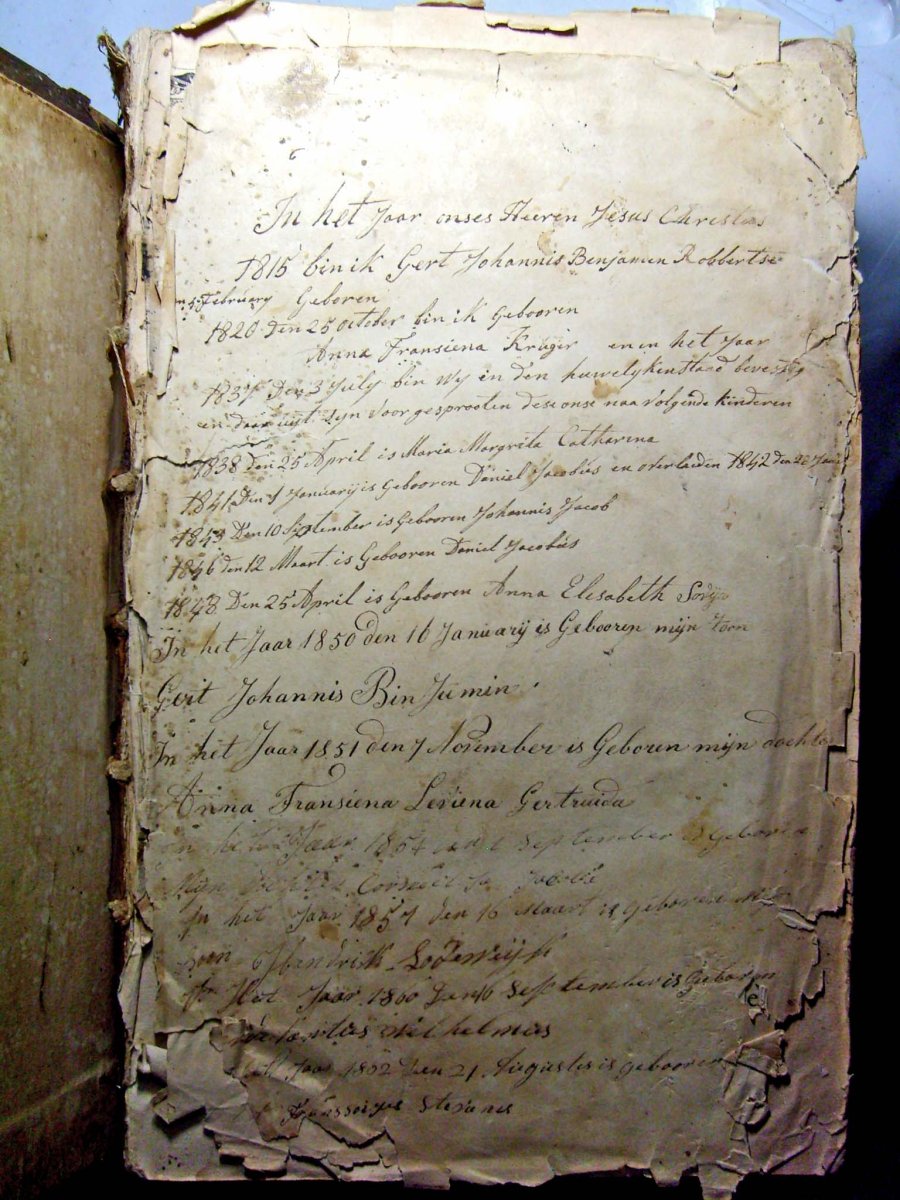 In het Jaar onses Heeren Jesus Christus
1815 bin ik Gert Johannis Benjamin Robbertse
February Geboren
1820 den 25 October bin ik Gebooren
Anna Fransiena Krugir en in het Jaar
1837 Den 3 July bin wy in den huwelyken staad bevestig
en daar uijt zyn voor gesprooten dese onse naavolgende kinderen
1838 den 25 April is Maria Margrita Catharina
1841 Den 1 Januarij is Gebooren Daniel Jacobus en overleiden 1842 den 22
1843 Den 10 September is Gebooren Johannis Jacob
1846 den 12 Maart is Gebooren Daniel Jacobus
1848 Den 25 April is Gebooren Anna Elesabeth
In het Jaar 1850 den 16 Januarij is Gebooren mijn zoon
Gert Johannis Bin Jumin
In het Jaar 1851 den 7 November is Geboren mijn dochter
Anna Fransiena Leviena Gertruida
Jaar 1854 September is geboren
Mijn
In het Jaar 1857 den 16 Maart is geboren mijn
soon Handrik Lodewijk
In Het Jaar 1860 Den 16 September is Geboren
wilhelmus
Jaar 1862 den 21 Augustus is gebooren
Stevanes